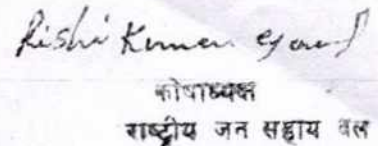 Rishi Kumar Goud
कोषाध्यक्ष
राष्ट्रीय जन सहाय दल